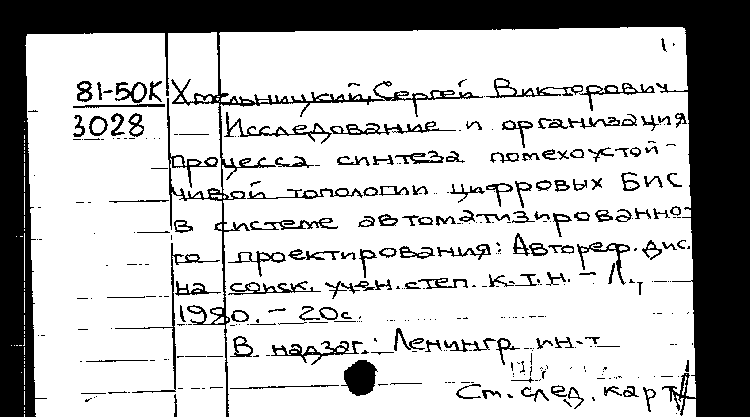 1.
81-50К Хмельницкий, Сергей Викторович
3028 Исследование и организация
процесса синтеза помехоустой-
чивой топологии цифровых БИС
в системе автоматизированно-
го проектирования: Автореф. дис.
на соиск. учен. степ. к.т.н. - Л.,
1980. - 20с.
В надзаг.: Ленингр. ин-т
См. след. карт